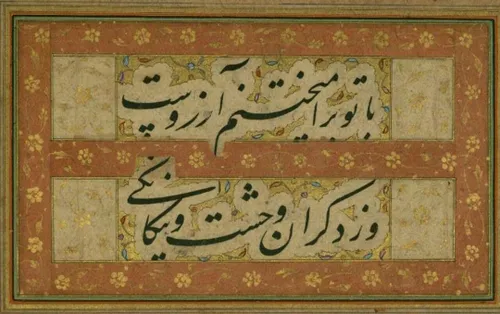 با تو برامیختنم آرزوست
وز دکران وحشت و بیکانکی